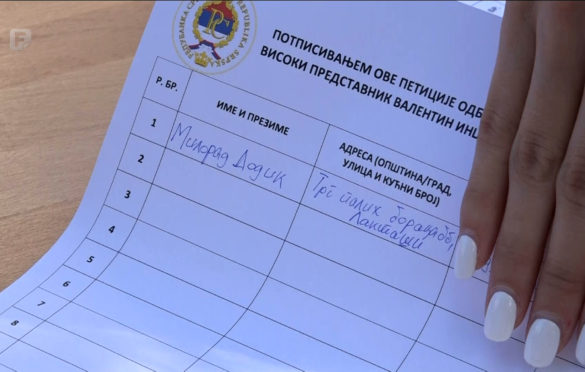 РЕПУБЛИКА СРПСКА
REPUBLIKA SRPSKA
ПОТПИСИВАЊЕМ ОВЕ ПЕТИЦИЈЕ ОДБ
ВИСОКИ ПРЕДСТАВНИК ВАЛЕНТИН ИНЦ
Р. БР.
ИМЕ И ПРЕЗИМЕ
АДРЕСА (ОПШТИНА/ГРАД,
УЛИЦА И КУЋНИ БРОЈ)
1
Милорад Додик
Трг палих бораца бб,
Лакташи
2
3
4
5
6
7
8